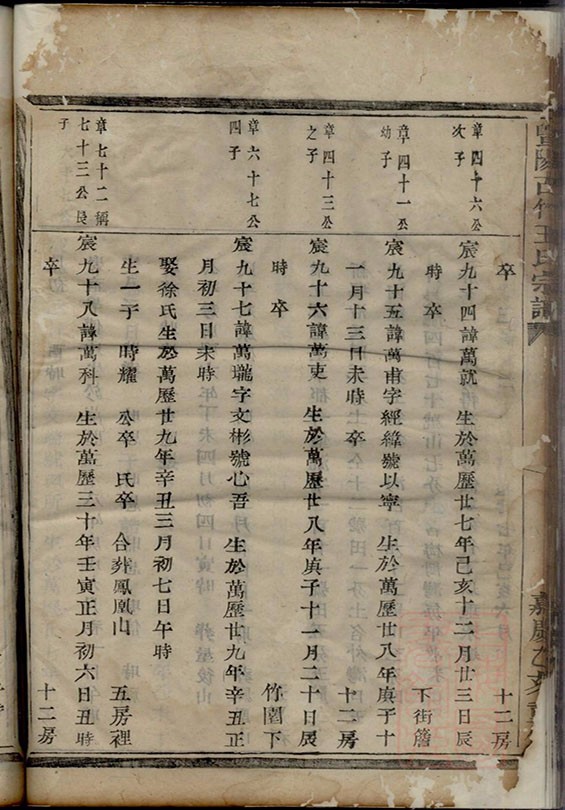 暨陽古竹王氏宗譜
嘉慶乙亥
卒
十二房
章四十六公次子
宸九十四諱萬就 生於萬歷廿七年己亥十二月廿三日辰
時 卒
下街簷
章四十一公幼子
宸九十五諱萬甫字經綠號以寧 生於萬歷廿八年庚子十
一月十三日未時 卒
十二房
章四十三公之子
宸九十六諱萬吏 生於萬歷廿八年庚子十一月二十日辰
時 卒
竹園下
章六十七公四子
宸九十七諱萬瓏字文彬號心吾 生於萬歷廿九年辛丑正
月初三日未時
娶徐氏生於萬歷廿九年辛丑三月初七日午時
生一子 時耀 公卒 氏卒 合葬鳳凰山
五房裡
章七十二稱七十三公長子
宸九十八諱萬科 生於萬歷三十年壬寅正月初六日丑時
卒
十二房